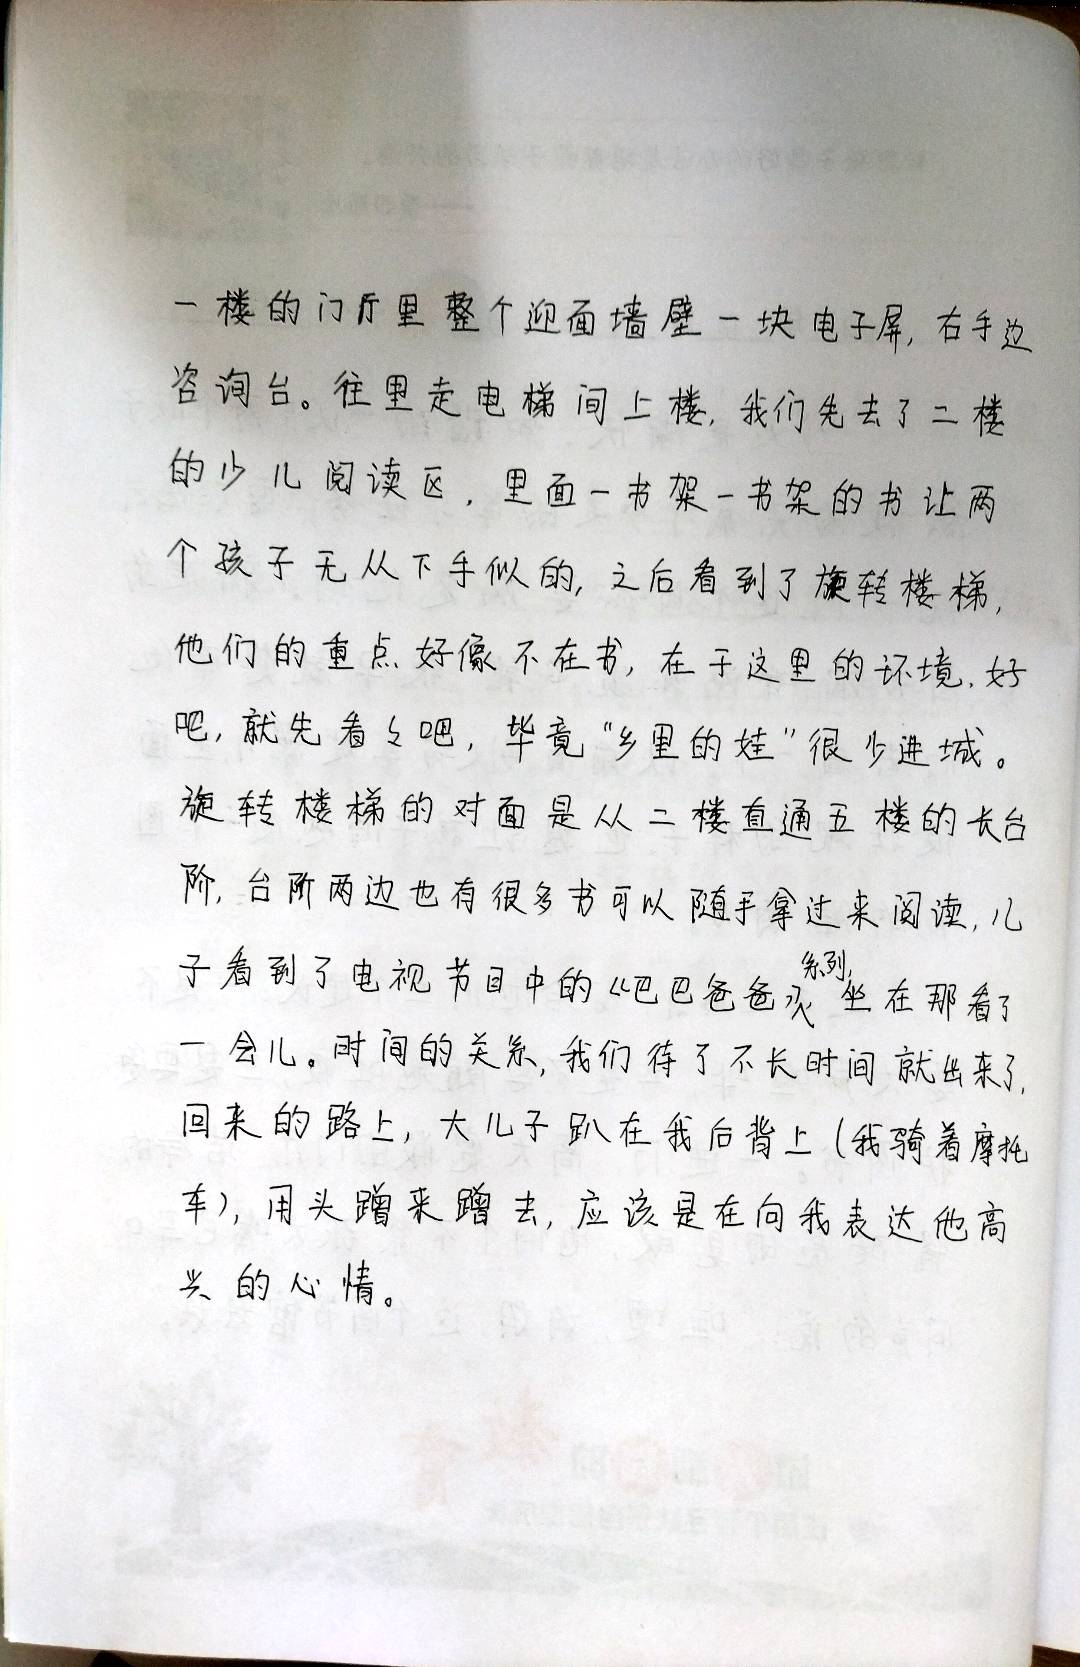 一楼的门厅里整个迎面墙壁一块电子屏,右手边
咨询台。往里走电梯间上楼,我们先去了二楼
的少儿阅读区,里面一书架一书架的书让两
个孩子无从下手似的,之后看到了旋转楼梯,
他们的重点好像不在书,在于这里的环境,好
吧,就先看々吧,毕竟“乡里的娃”很少进城。
旋转楼梯的对面是从二楼直通五楼的长台
阶,台阶两边也有很多书可以随手拿过来阅读,儿
子看到了电视节目中的《巴巴爸爸》系列,坐在那看了
一会儿。时间的关系,我们待了不长时间就出来了,
回来的路上,大儿子趴在我后背上(我骑着摩托
车),用头蹭来蹭去,应该是在向我表达他高
兴的心情。